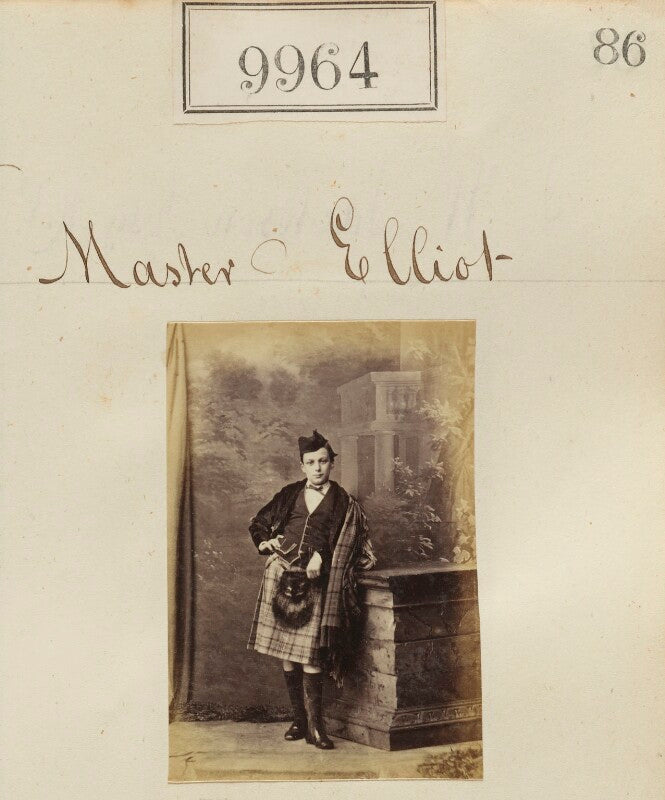 9964
86
Master Elliot